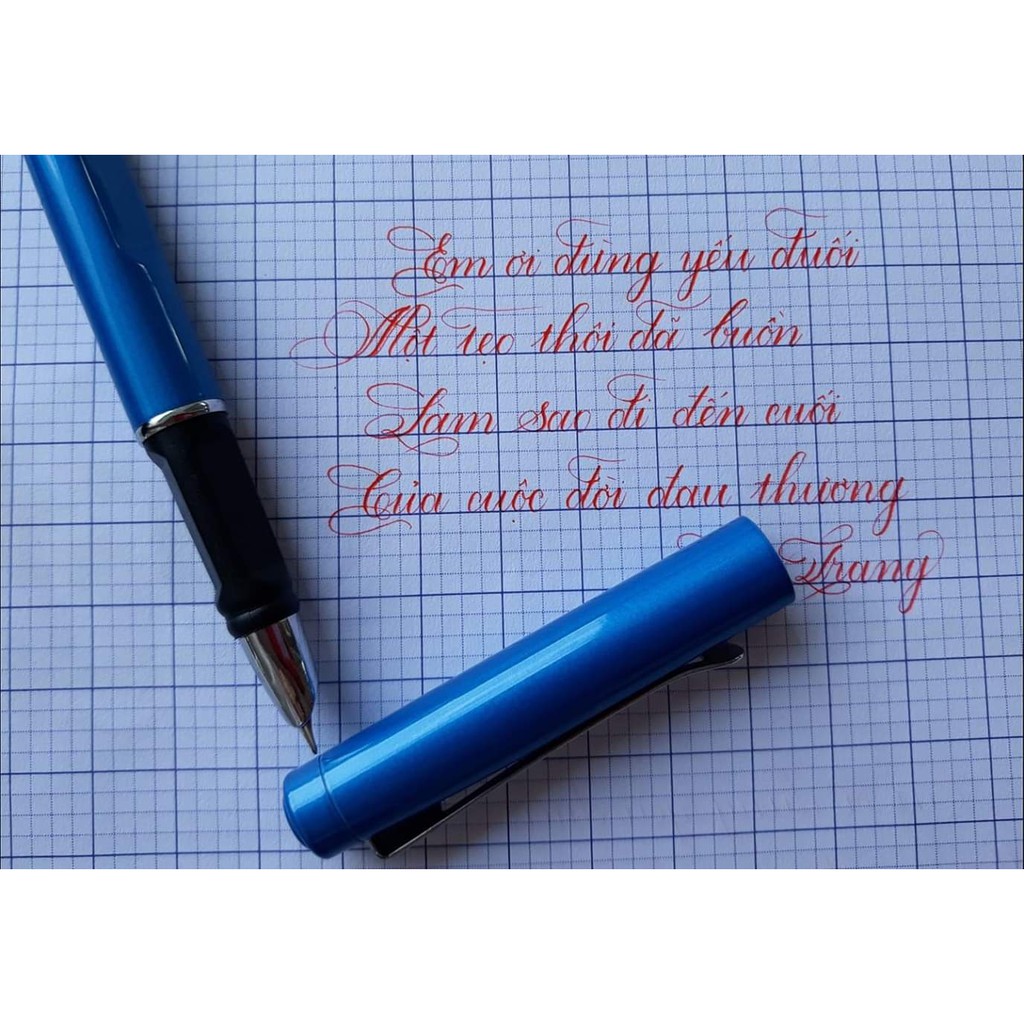 Em ơi đừng yếu đuối
Một tẹo thôi đã buồn
Làm sao đi đến cuối
Của cuộc đời đau thương
Trang